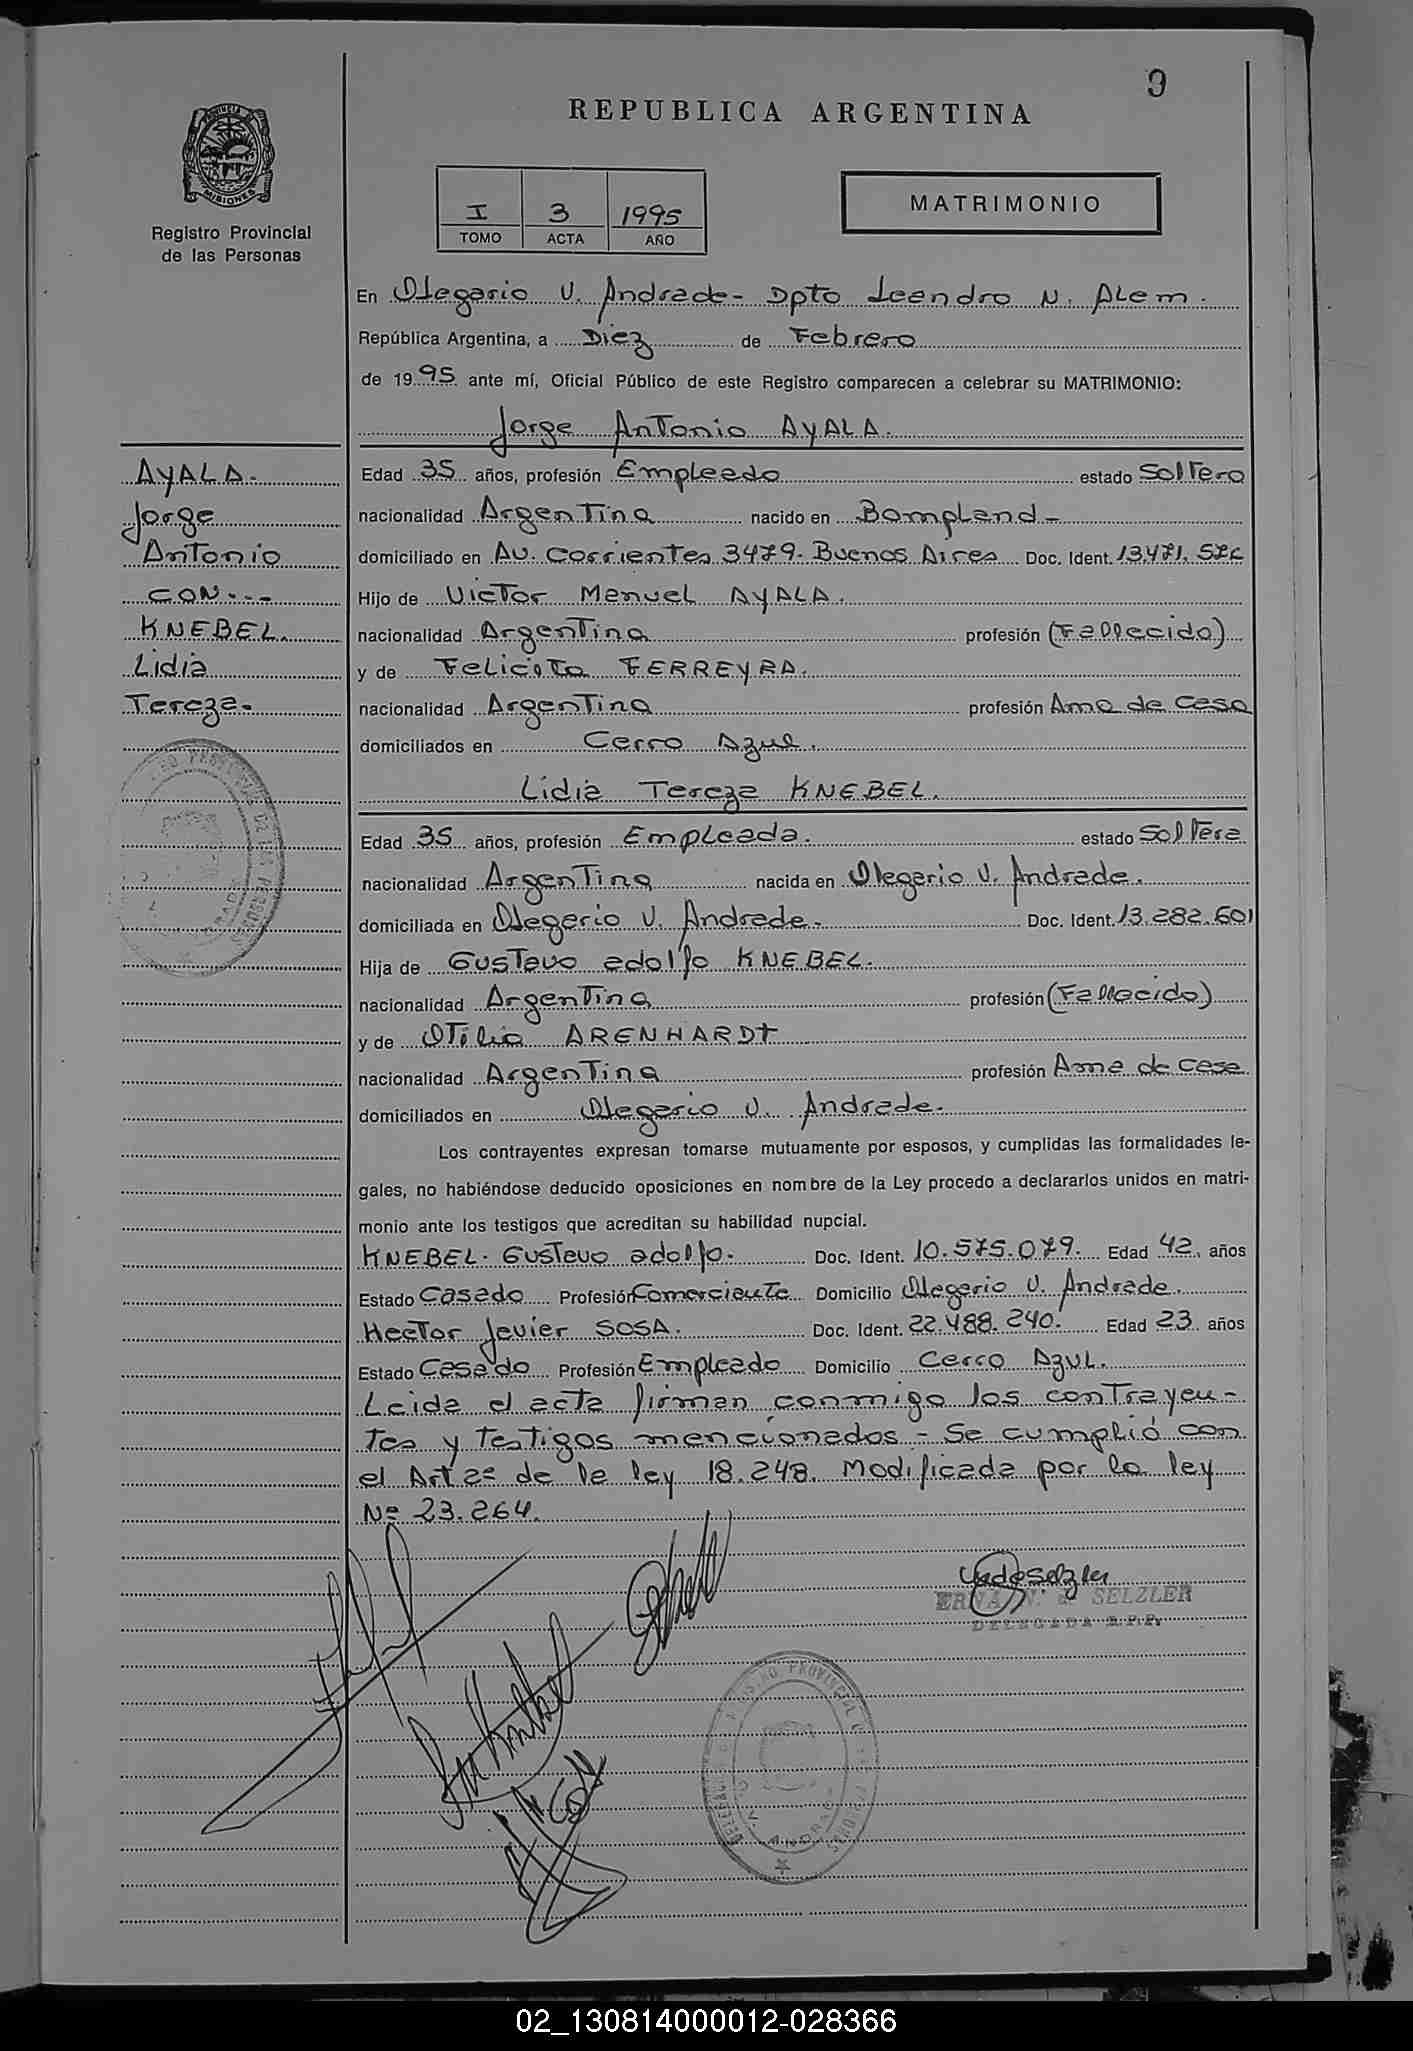 9
REPUBLICA ARGENTINA
PROVINCIA DE MISIONES
Registro Provincial
de las Personas
I 3 1995
TOMO ACTA AÑO
MATRIMONIO
En Olegario V. Andrade - Dpto Leandro N. Alem.
República Argentina, a Diez de Febrero
de 1995 ante mí, Oficial Público de este Registro comparecen a celebrar su MATRIMONIO:
Jorge Antonio AyALA.
AyALA.
Jorge
Antonio
CON---
KNEBEL.
Lidia
Tereza.
Edad 35 años, profesión Empleado estado Soltero
nacionalidad Argentina nacido en Bompland-
domiciliado en Av. Corrientes 3479. Buenos Aires Doc. Ident. 13.471.
Hijo de Victor Manuel AyALA.
nacionalidad Argentina profesión (Fallecido)
y de Felicita FERREyRA.
nacionalidad Argentina profesión Ama de Casa
domiciliados en Cerro Azul.
Lidia Tereza KNEBEL.
Edad 35 años, profesión Empleada. estado Soltera
nacionalidad Argentina nacida en Olegario V. Andrade.
domiciliada en Olegario V. Andrade. Doc. Ident. 13.282.601
Hija de Gustavo adolfo KNEBEL.
nacionalidad Argentina profesión (Fallecido)
y de Otilia ARENHARDT
nacionalidad Argentina profesión Ama de casa
domiciliados en Olegario V. Andrade.
Los contrayentes expresan tomarse mutuamente por esposos, y cumplidas las formalidades le-
gales, no habiéndose deducido oposiciones en nombre de la Ley procedo a declararlos unidos en matri-
monio ante los testigos que acreditan su habilidad nupcial.
KNEBEL. Gustavo adolfo. Doc. Ident. 10.575.079. Edad 42 años
Estado Casado Profesión Comerciante Domicilio Olegario V. Andrade.
Hector Javier SOSA. Doc. Ident. 22.488.240. Edad 23 años
Estado Casado Profesión Empleado Domicilio Cerro Azul.
Leida el acta firman conmigo los contrayen-
tes y testigos mencionados - Se cumplió con
el Art 2º de la ley 18.248. Modificada por la ley
Nº 23.264.
ERNA N. de SELZLER
DELEGADA R.P.P.
02_130814000012-028366